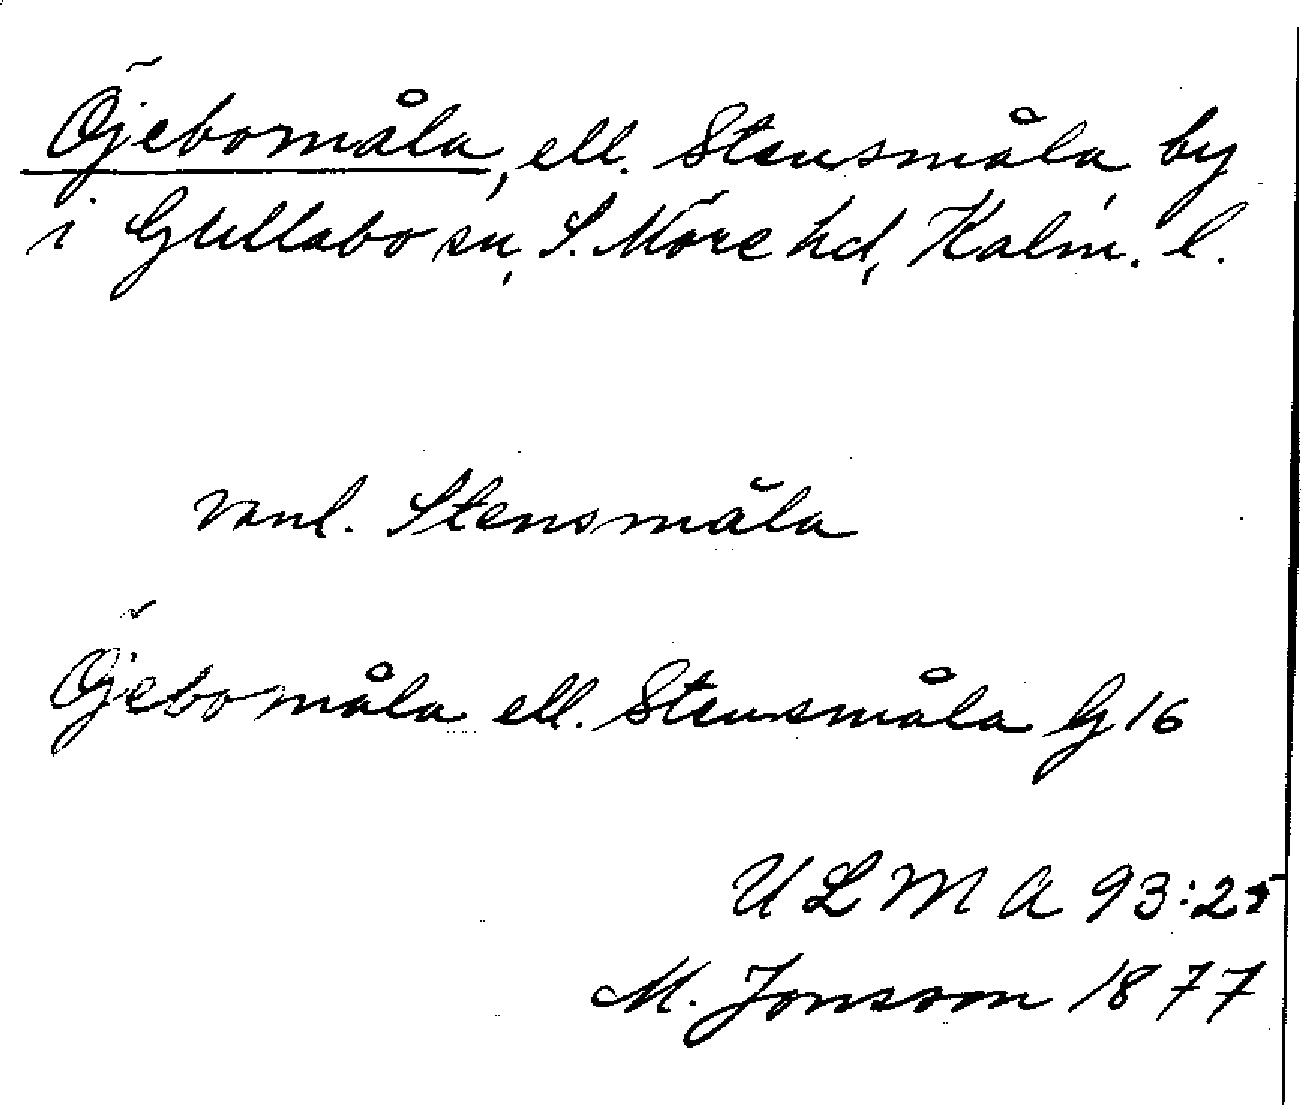 Öjebomåla, ell. Stensmåla, by
i Gullabo sn, S. Möre hd, Kalm. l.
vanl. Stensmåla
Öjebomåla ell. Stensmåla G 16
ULMA 93:25
M. Jonsson 1877